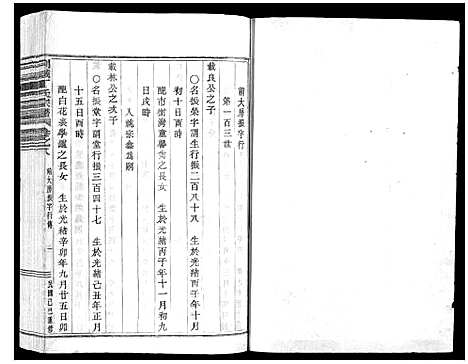 前大房振字行
第一百三世
載良公之子
〇名振榮字剛生行二百八十八 生於光緒丙子年十月
初十日酉時
配市街灣童馨岙之長女 生於光緒丙子年十一月初九
日戌時
人祧宗鑫爲嗣
載林公之次子
〇名振堂字開堂行三百四十七 生於光緒己丑年正月
十五日酉時
配白花裘學運之長女 生於光緒辛卯年九月廿五日卯
前大房振字行傳 一
民國己巳重修